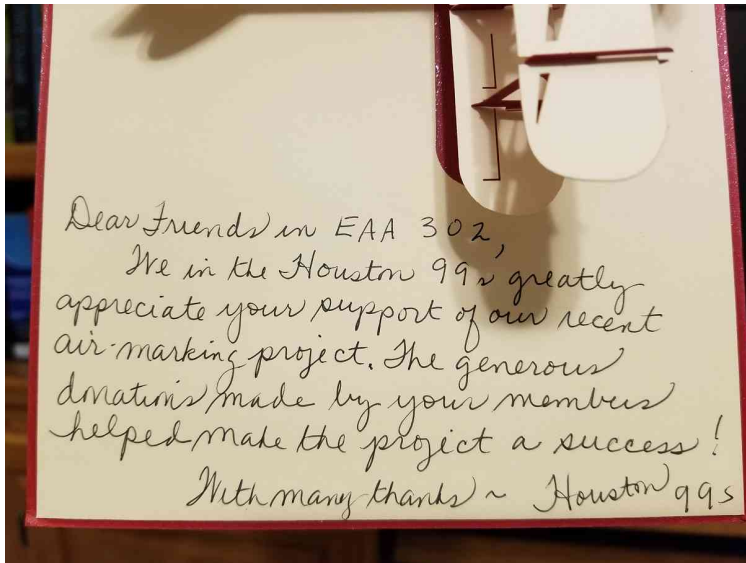 Dear Friends in EAA 302,
We in the Houston 99s greatly
appreciate your support of our recent
air-marking project. The generous
donations made by your members
helped make the project a success!
With many thanks ~ Houston 99s